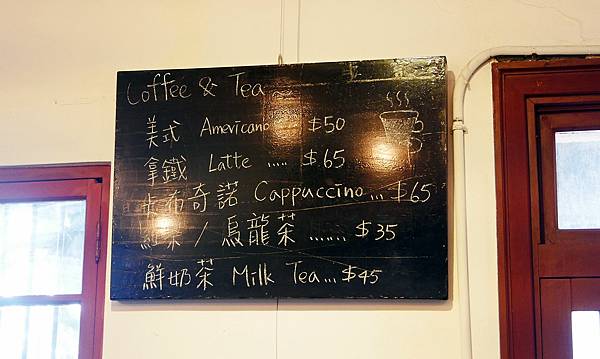 Coffee & Tea
美式 Americano $50
拿鐵 Latte ..... $65
卡布奇諾 Cappuccino... $65
紅茶 / 烏龍茶 ....... $35
鮮奶茶 Milk Tea... $45